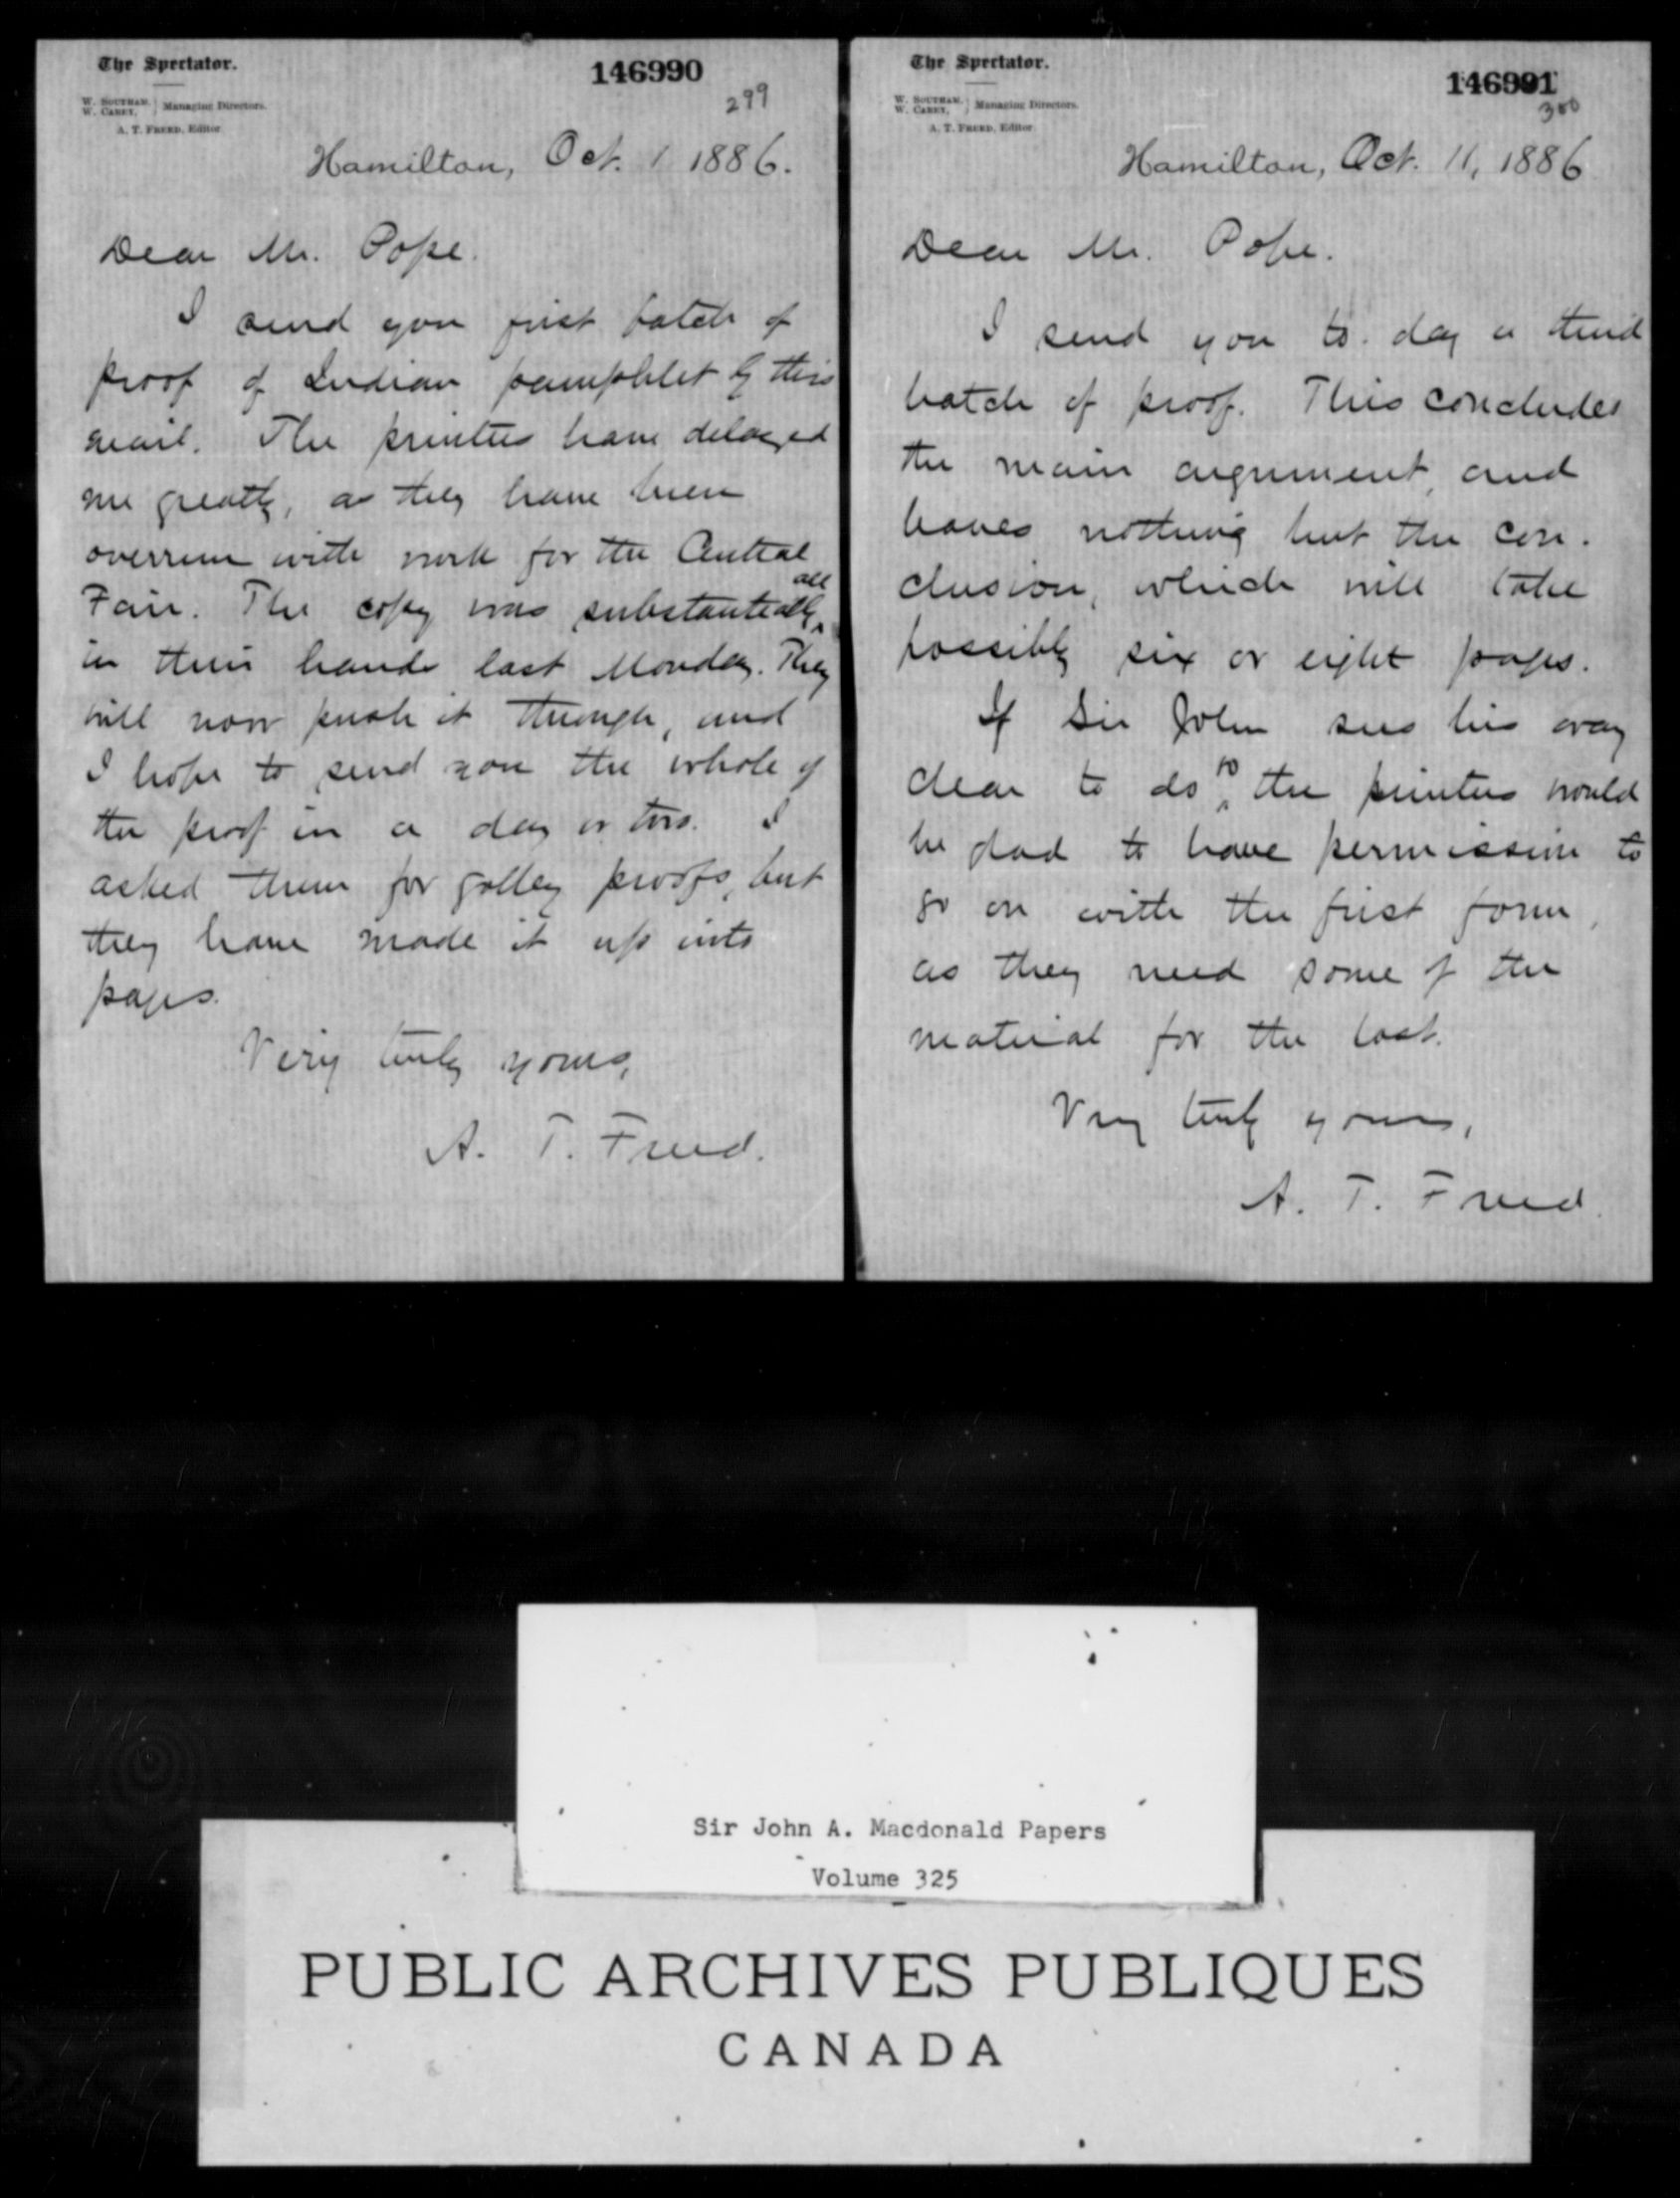 The Spectator.
146990
299
W. SOUTHAM, } Managing Directors.
W. CAREY,
A. T. FREED, Editor
Hamilton, Oct. 1 1886.
Dear Mr. Pope.
I send you first batch of
proof of Indian pamphlet by this
mail. The printers have delayed
me greatly, as they have been
overrun with work for the Central
Fair. The copy was substantially all
in their hands last Monday. They
will now push it through, and
I hope to send you the whole of
the proof in a day or two. I
asked them for galley proofs, but
they have made it up into
pages.
Very truly yours,
A. T. Freed.
The Spectator.
146991
300
W. SOUTHAM, } Managing Directors.
W. CAREY,
A. T. FREED, Editor
Hamilton, Oct. 11, 1886
Dear Mr. Pope.
I send you to-day a third
batch of proof. This concludes
the main argument, and
leaves nothing but the con-
clusion, which will take
possibly six or eight pages.
If Sir John sees his way
clear to do so, the printers would
be glad to have permission to
go on with the first form,
as they need some of the
material for the last.
Very truly yours,
A. T. Freed.
Sir John A. Macdonald Papers
Volume 325
PUBLIC ARCHIVES PUBLIQUES
CANADA